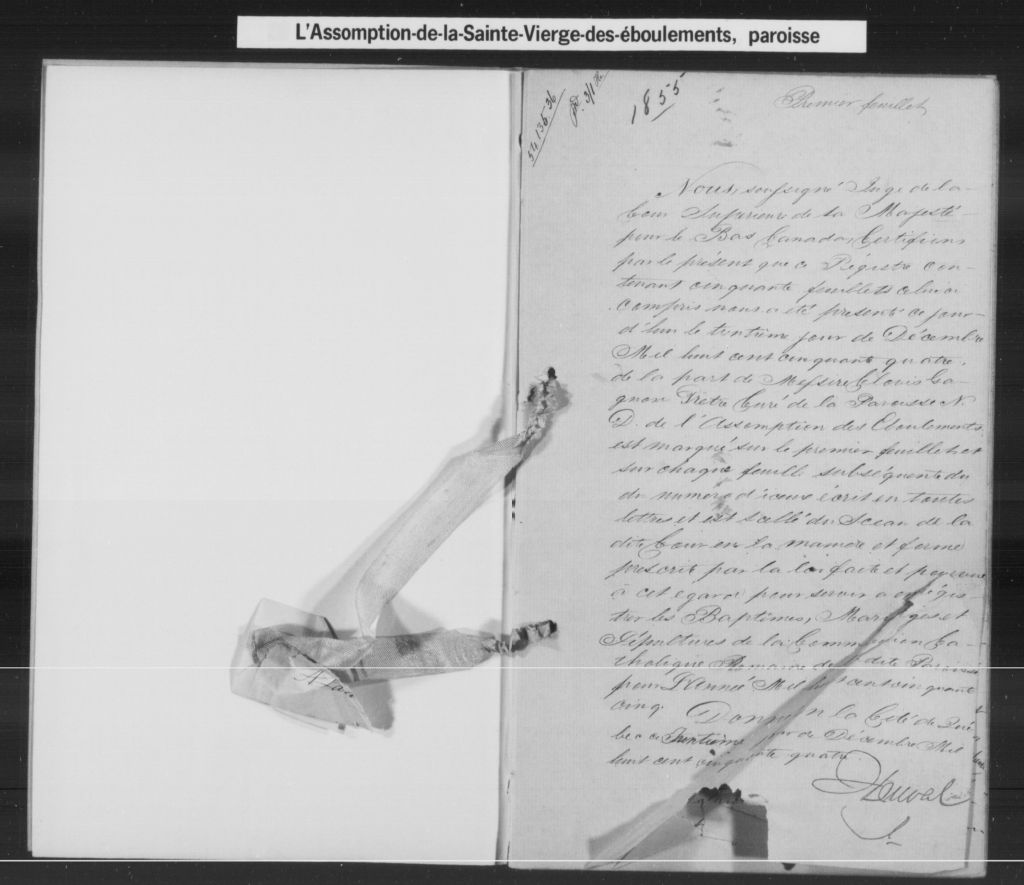 L'Assomption-de-la-Sainte-Vierge-des-éboulements, paroisse
54.135.36
1855
Premier feuillet
Nous, soussigné Juge de la
Cour Supérieure de Sa Majesté
pour le Bas Canada, Certifions
par le présent que ce Régistre con-
tenant cinquante feuillets celui ci
compris nous a été présenté ce jour-
d'hui le trentième jour de Décembre
Mil huit cent cinquante quatre,
de la part de Messire Clovis Ga-
gnon Prêtre Curé de la Paroisse N.
D. de l'Assomption des Eboulements
est marqué sur le premier feuillet et
sur chaque feuille subséquente du
du numero d'iceux écrit en toutes
lettres et est scellé du Sceau de la
dite Cour en la maniere et forme
prescrite par la loi faite et pourvue
à cet egard pour servir a enrégis-
trer les Baptêmes, Mariages et
Sépultures de la Communion Ca-
tholique Romaine de dite Paroisse
pour L'Année Mil huit cent cinquante
cinq. Donné en la Cité de Qué-
bec ce trentième jour de Décembre Mil
huit cent cinquante quatre.
Duval
J.